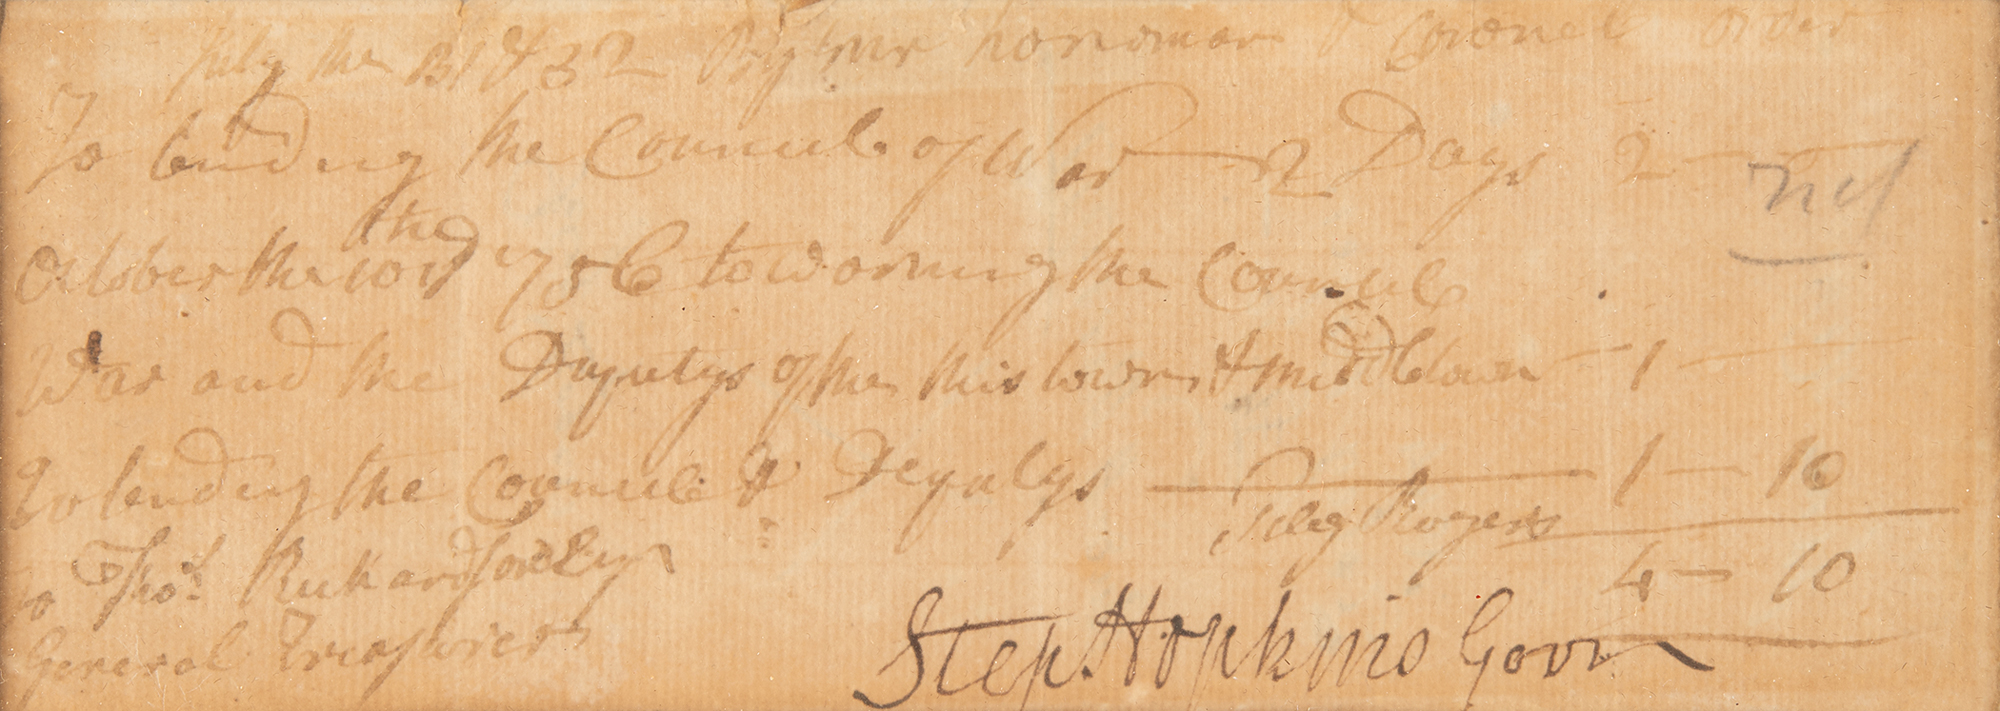 July the By his honomar & Councel order
To tending the Councel of War — 2 Days 2 —
the
October the 10th 1756 to worning the Councel
War and the Deputys of the this town & middletown — 1 —
To tending the Councel & Deputys — 1 — 10
Peleg Rogers
4 — 10
To Thos. Richardson Esqr
General Treasurer
Step. Hopkins Govr